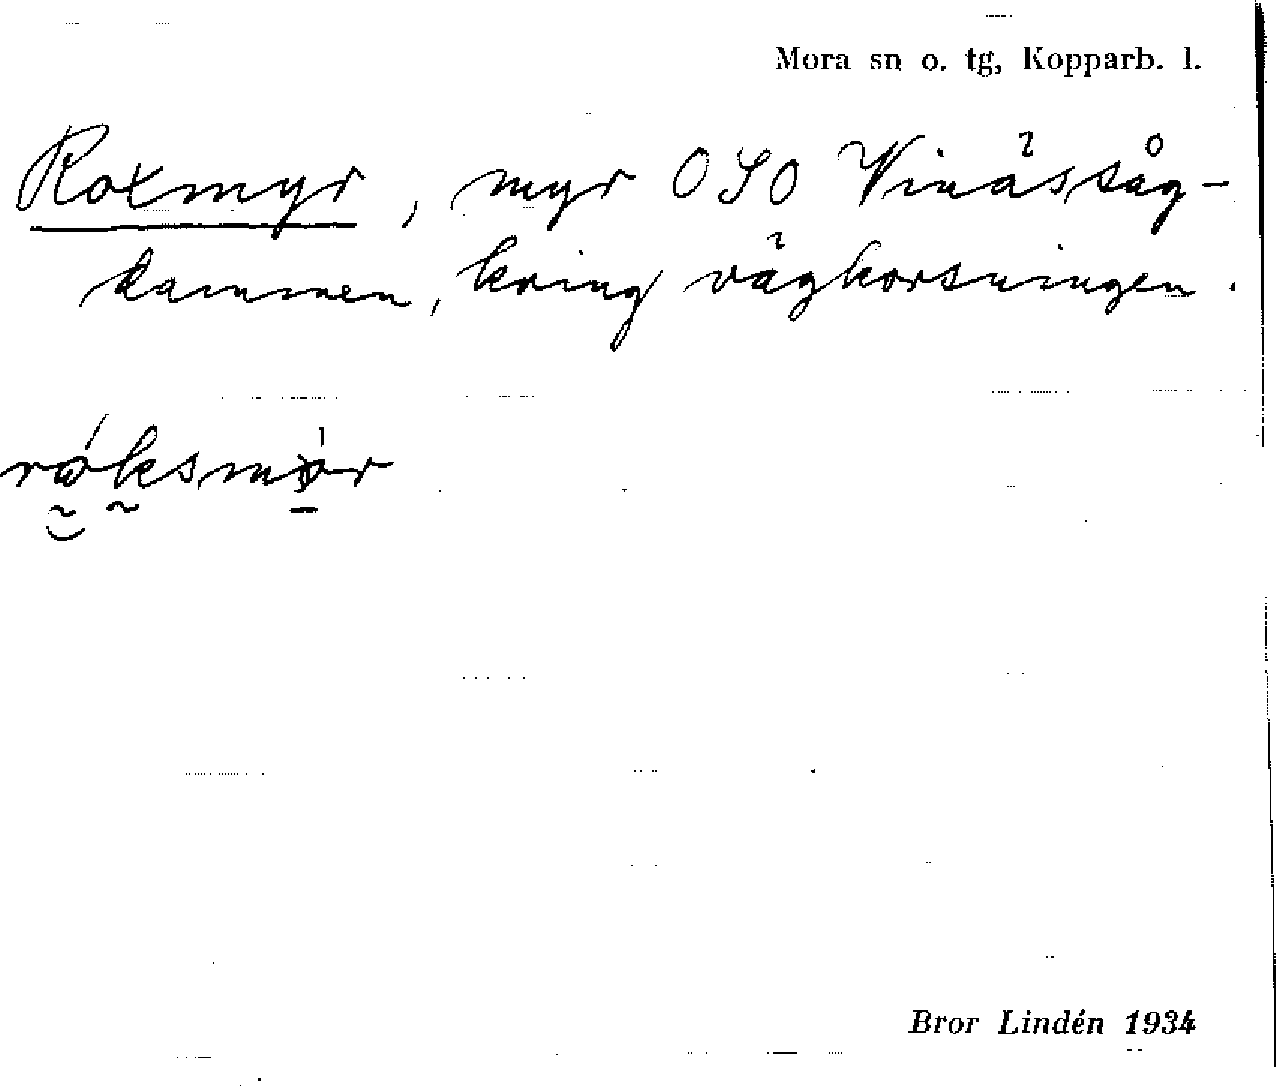 Mora sn o. tg, Kopparb. l.
Roxmyr, myr OSO Vinässåg-
dammen, kring vägkorsningen.
Bror Lindén 1934